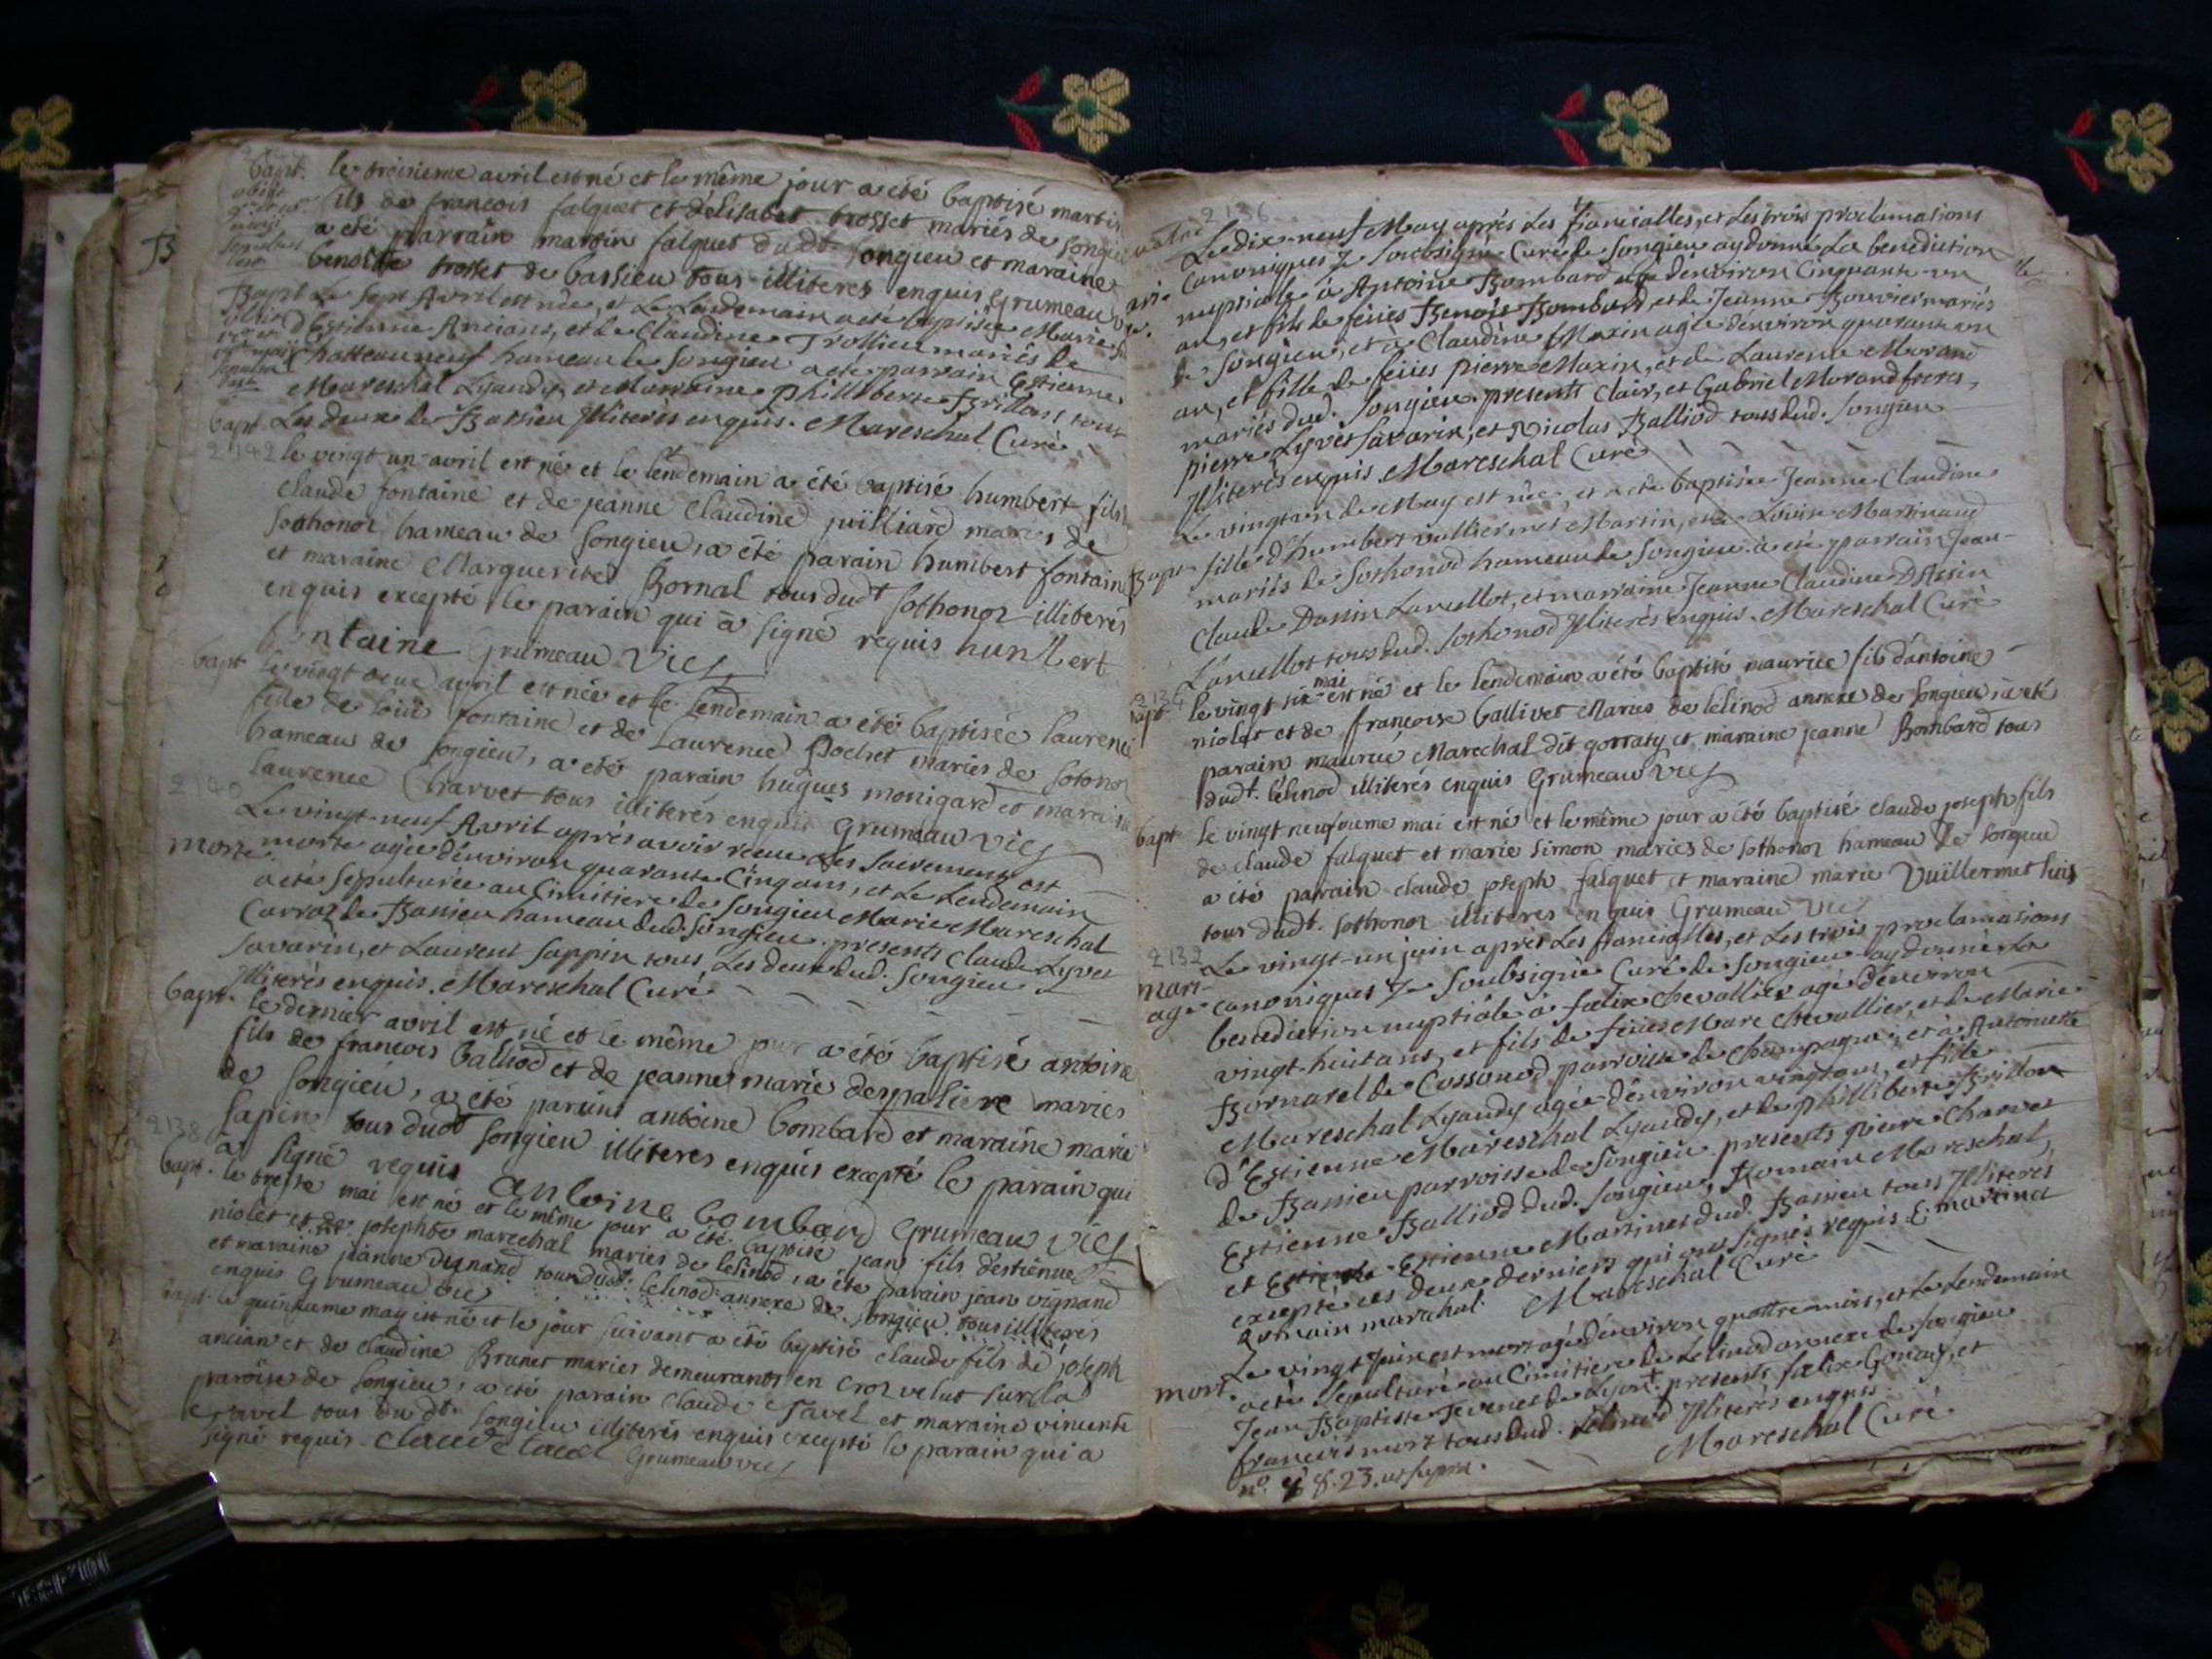 bapt. le troisieme avril est né et le même jour a été baptisé martin
fils de francois falquet et délisabet trosset mariés de songieu
a été parrain martin falquet dudt songieu et maraine
benoite trosset de bassieu tous illiteres enquis Grumeau
Bapt Le sept Avril est née, et Le Lendemain a eté baptisée Marie
d'Estienne Anciant, et de Claudine Trollieu mariés de
Chatteauneuf hameau de Songieu a eté parrain Estienne
Mareschal Lyaudy et Marraine Philliberte Brillon, tous
Les deux de Bassieu Illiterés enquis. Mareschal Curé
bapt.
2142 le vingt un avril est né et le lendemain a été baptisé humbert fils
claude fontaine et de jeanne Claudine juilliard mariés de
sothonoz hameau de songieu, a été parain humbert fontaine
et maraine Marguerite Bornal tous dudt sothonoz illiterés
enquis excepté le parain qui a signé requis humbert
fontaine Grumeau vic
bapt le vingt deux avril est née et le lendemain a été baptisée laurence
fille de loüi fontaine et de Laurence Pochet mariés de sotonoz
hameau de songieu, a eté parain hugues monigard et maraine
laurence Charvet tous illiterés enquis Grumeau vic
2140
Le vingt-neuf Avril aprés avoir receu Les sacrements est
morte morte agée d'environ quarante Cinq ans, et Le Lendemain
a eté sepulturée au Cimitiere de Songieu Marie Mareschal
Carroz de Bassieu hameau dud. Songieu. presents Claude Lyvet
Savarin, et Laurent Sappin tous Les deux dud. Songieu
Illiterés enquis. Mareschal Curé
bapt. le dernier avril est né et le même jour a été baptisé antoine
fils de francois balliod et de jeanne marie despaliere mariés
de songieu, a été parain antoine bombard et maraine marie
sapin tous dudt songieu illiteres enquis excepté le parain qui
2138 a signé requis antoine bombard Grumeau vic
bapt. le treize mai est né et le même jour a été baptisé jean fils d'estienne
niolet et de josephte marechal mariés de lelinod, a été parain jean vignand
et maraine jeanne dunand tous dudt. lelinod annexe de songieu tous illiterés
enquis Grumeau vic
bapt. le quinzieme may est né et le jour suivant a été baptisé claude fils de joseph
ancian et de claudine Brunet mariés demeurants en croz velut sur la
paroise de songieu, a eté parain claude tavel et maraine vincente
tavel tous du dt. songieu illiterés enquis excepté le parain qui a
signé requis. claude tavel Grumeau vic
2136
Le dix-neuf May aprés Les fiancialles, et Les trois proclamations
Canoniques Je soubsigné Curé de Songieu ay donné La benediction
nuptiale à Antoine Bombard agé d'environ Cinquante-un
an, et fils de feües Benoit Bombard, et de Jeanne Bouvier mariés
de Songieu, et à Claudine Maxin agée d'environ quarante un
an, et fille de feües pierre Maxin, et de Laurence Morand
mariés dud. Songieu. presents Clair, et Gabriel Morand freres,
pierre Lyvet Savarin, et Nicolas Balliod tous dud. Songieu
Illiterés enquis. Mareschal Curé
Le vingt un de May est née, et a eté baptisée Jeanne Claudine
Bapt fille d'humbert vullierme Martin, et de Louise Martinaud
mariés de Sothonod hameau de Songieu. a eté parrain Jean-
Claude Dassin Lanullot, et marraine Jeanne Claudine Dassin
Lanullot tous dud. Sothonod Illiterés enquis. Mareschal Curé
bapt le vingt six mai est né et le lendemain a été baptisé maurice fils d'antoine
niolet et de francoise ballivet Mariés de lelinod annexe de songieu, a eté
parain maurice Marechal dit gottaty et maraine jeanne Bombard tous
dudt. lelinod illiterés enquis Grumeau vic
bapt le vingt neufvieme mai est né et le même jour a été baptisé claude joseph fils
de claude falquet et marie simon mariés de sothonoz hameau de songieu
a été parain claude joseph falquet et maraine marie Vuillermet
tous dudt. sothonoz illiteres enquis Grumeau vic
2132
Le vingt-un juin aprés Les fiancialles, et Les trois proclamations
mariage canoniques Je Soubsigné Curé de Songieu ay donné La
benediction nuptiale à fœlix Chevallier agé d'environ
vingt-huit ans, et fils de feües Marc Chevallier, et de Marie
Bornarel de Cossonod parroisse de Champagne; et à Antoinette
Mareschal Lyaudy agée d'environ vingt ans, et fille
d'Estienne Mareschal Lyaudy, et de philliberte Brillon
de Bassieu parroisse de Songieu. presents pierre Charvet
Estienne Balliod dud. Songieu, Romain Mareschal,
et Estienne Martinet dud. Bassieu tous Illiterés
excepté ces deux derniers qui ont signés requis E. martinet
Romain marechal. Mareschal Curé
Le vingt Juin est mort agé d'environ quattre mois, et Le Lendemain
mort. a eté sepulturé au Cimitiere de Lelinod annexe de Songieu
Jean Baptiste Tevenet de Lyon. presents fœlix Gonay, et
francois mort tous dud. Lelinod Illiterés enquis.
nº. 8. 23. ut supra. Mareschal Curé